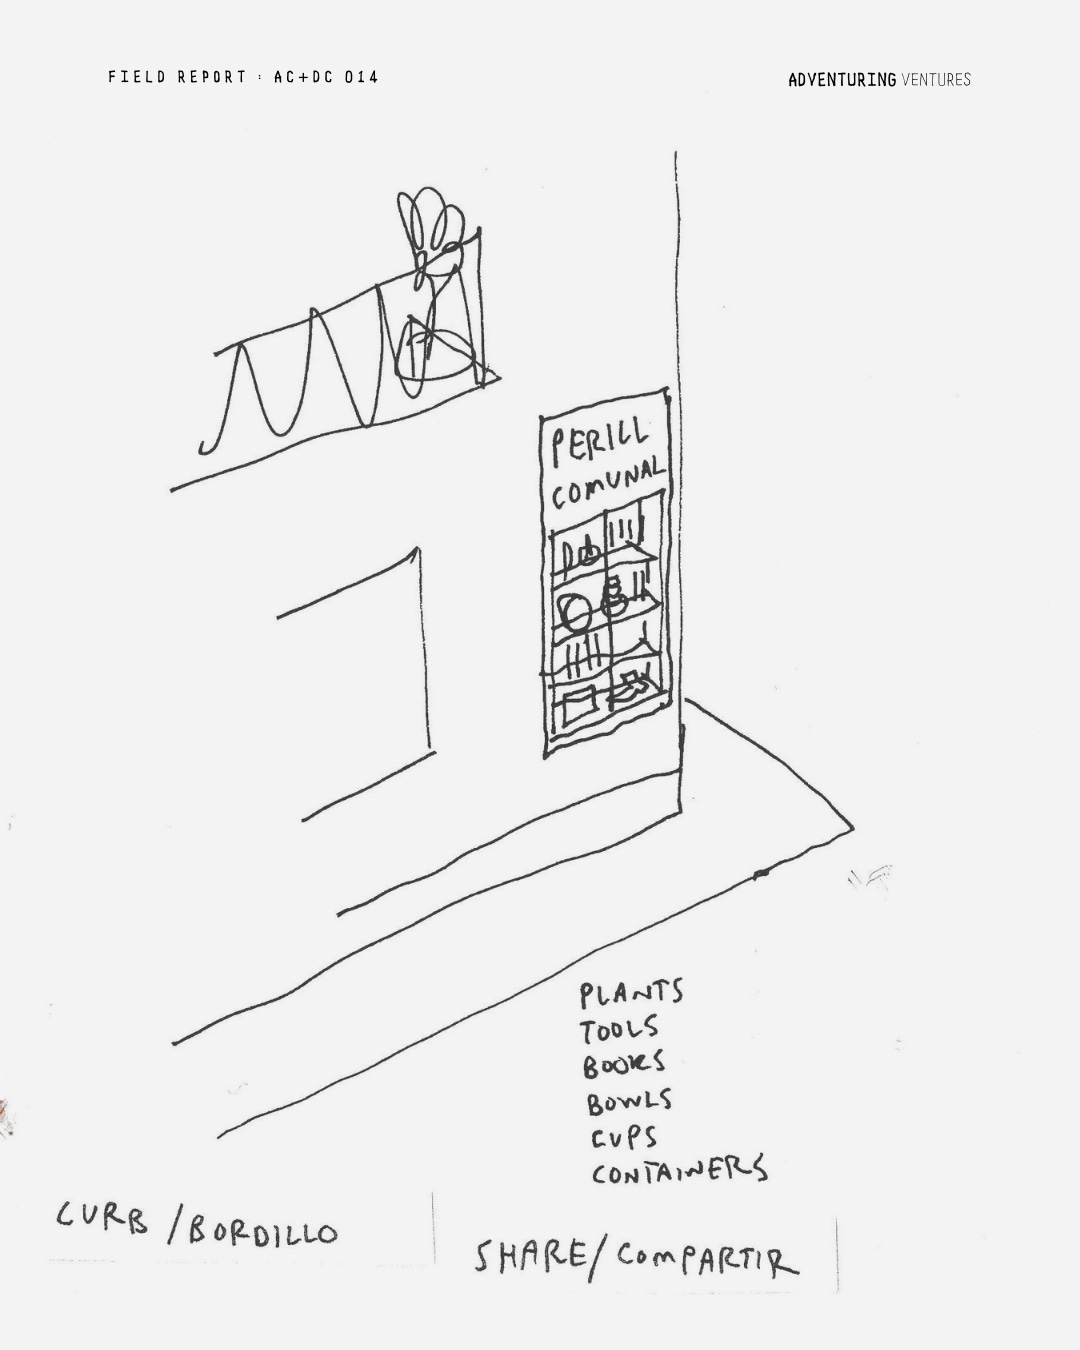 FIELD REPORT : AC+DC 014
ADVENTURING VENTURES
PERILL
COMUNAL
PLANTS
TOOLS
BOOKS
BOWLS
CUPS
CONTAINERS
CURB / BORDILLO
SHARE / COMPARTIR